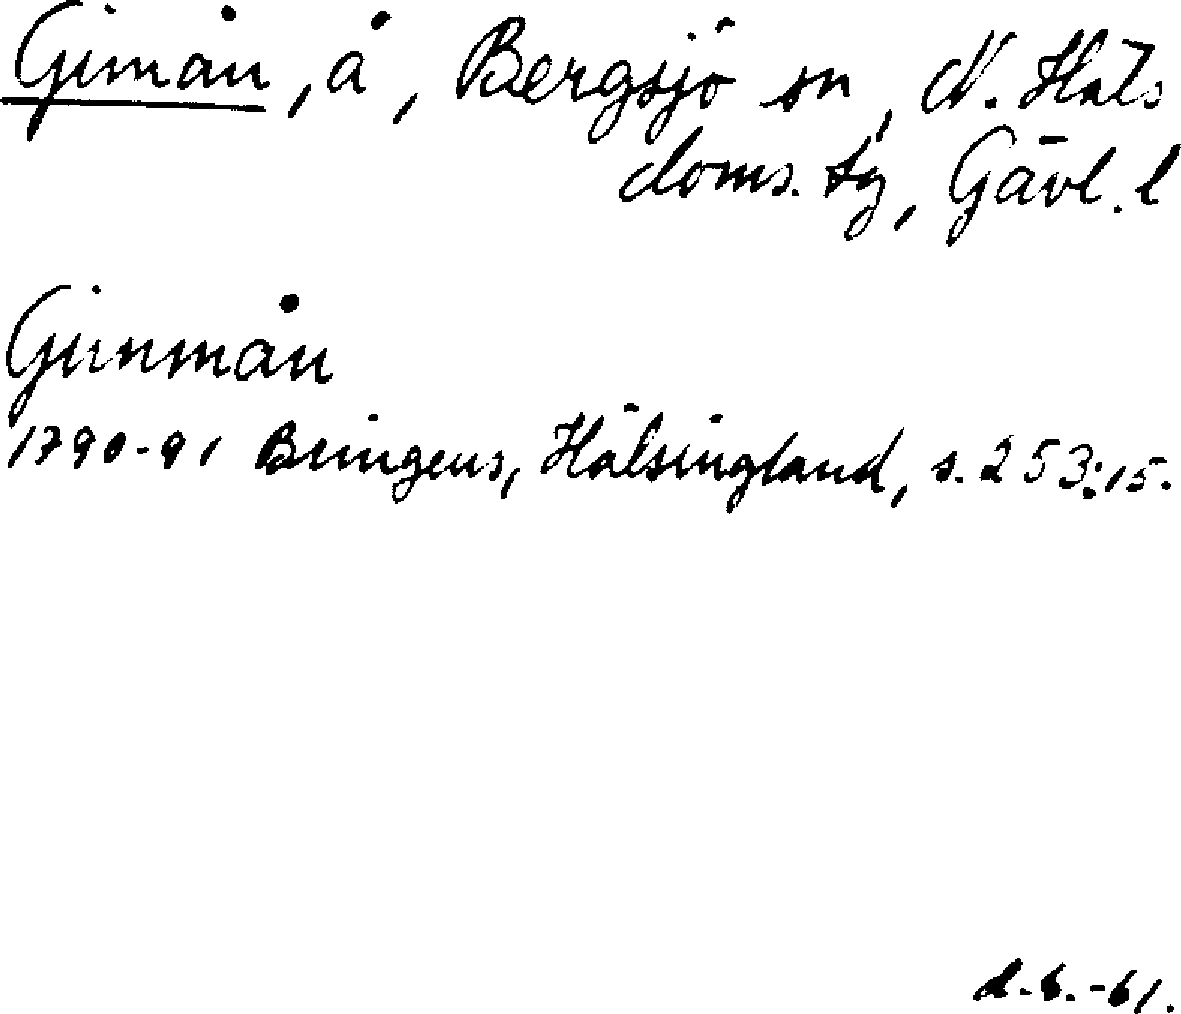 Gimån, å, Bergsjö sn, N. Häls
doms. tg, Gävl. l
Ginmån
1790-91 Bringeus, Hälsingland, s. 253:15.
d.6.-61.